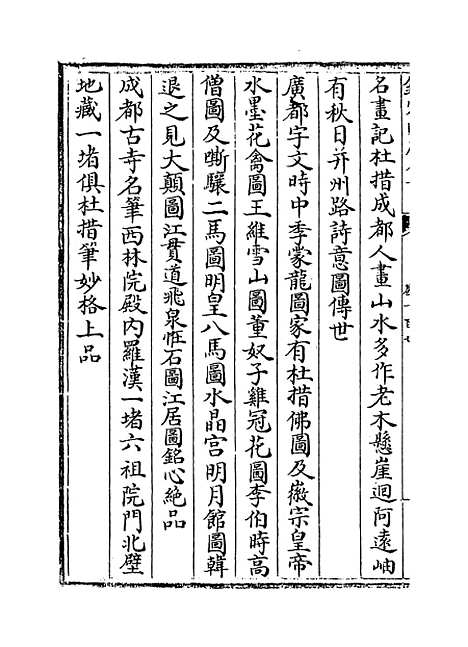 名畫記杜措成都人畫山水多作老木懸崖迴阿遠岫
有秋日并州路詩意圖傳世
廣都宇文時中季蒙龍圖家有杜措佛圖及徽宗皇帝
水墨花禽圖王維雪山圖董奴子雞冠花圖李伯時高
僧圖及嘶驟二馬圖明皇八馬圖水晶宮明月館圖韓
退之見大顛圖江貫道飛泉恠石圖江居圖銘心絶品
成都古寺名筆西林院殿内羅漢一堵六祖院門北壁
地藏一堵俱杜措筆妙格上品